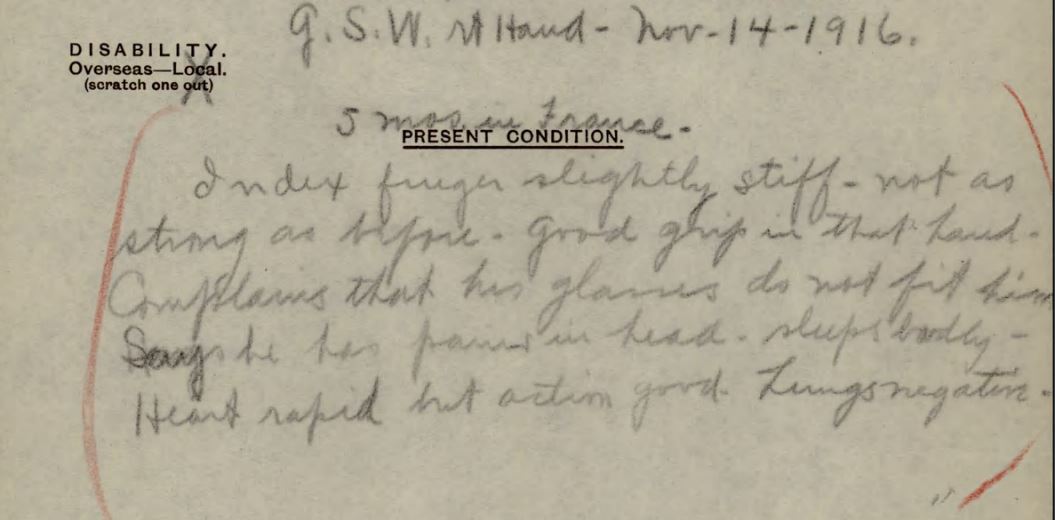 G.S.W. rt Hand - Nov-14-1916.
DISABILITY.
Overseas—Local.
(scratch one out)
X
5 mos in France -
PRESENT CONDITION.
Index finger slightly stiff - not as
strong as before - Good grip in that hand -
Complains that his glasses do not fit him
Says he has pains in head - sleeps badly -
Heart rapid but action good. Lungs negative -